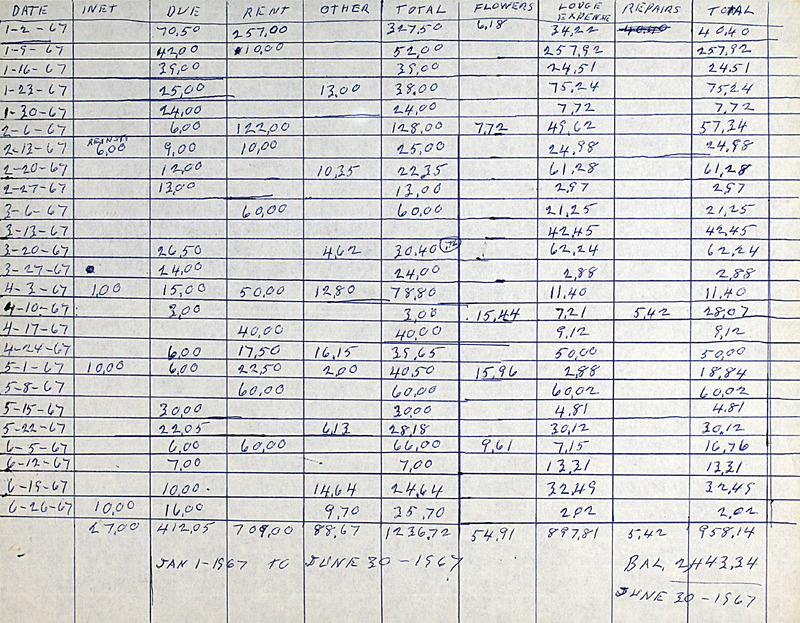 DATE INET DUE RENT OTHER TOTAL FLOWERS LODGE EXPENSE REPAIRS TOTAL
1-2-67 70.50 257.00 327.50 6.18 34.22 40.40 40.40
1-9-67 42.00 10.00 52.00 257.92 257.92
1-16-67 39.00 39.00 24.51 24.51
1-23-67 25.00 13.00 38.00 75.24 75.24
1-30-67 24.00 24.00 7.72 7.72
2-6-67 6.00 122.00 128.00 7.72 49.62 57.34
2-13-67 6.00 9.00 10.00 25.00 24.98 24.98
2-20-67 12.00 10.35 22.35 61.28 61.28
2-27-67 13.00 13.00 2.97 2.97
3-6-67 60.00 60.00 21.25 21.25
3-13-67 42.45 42.45
3-20-67 26.50 4.62 30.40 .72 62.24 62.24
3-27-67 24.00 24.00 2.88 2.88
4-3-67 1.00 15.00 50.00 12.80 78.80 11.40 11.40
4-10-67 3.00 3.00 15.44 7.21 5.42 28.07
4-17-67 40.00 40.00 9.12 9.12
4-24-67 6.00 17.50 16.15 39.65 50.00 50.00
5-1-67 10.00 6.00 22.50 2.00 40.50 15.96 2.88 18.84
5-8-67 60.00 60.00 60.02 60.02
5-15-67 30.00 30.00 4.81 4.81
5-22-67 22.05 6.13 28.18 30.12 30.12
6-5-67 6.00 60.00 66.00 9.61 7.15 16.76
6-12-67 7.00 7.00 13.31 13.31
6-19-67 10.00 14.64 24.64 32.49 32.49
6-26-67 10.00 16.00 9.70 35.70 2.02 2.02
27.00 412.05 709.00 88.67 1236.72 54.91 897.81 5.42 958.14
JAN 1-1967 TO JUNE 30-1967 BAL 2443.34
JUNE 30-1967